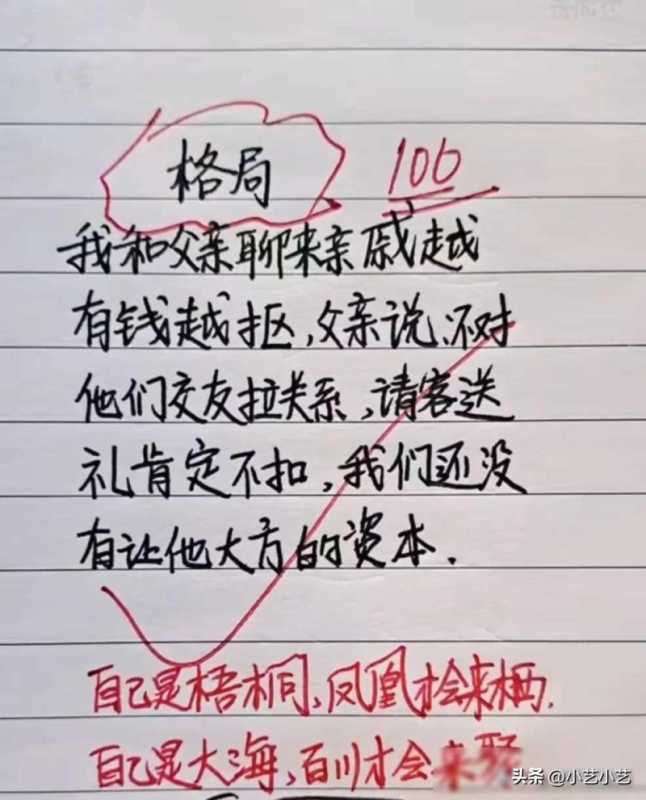 格局
100
我和父亲聊来亲戚越
有钱越抠,父亲说,不对
他们交友拉关系,请客送
礼肯定不扣,我们还没
有让他大方的资本.
自己是梧桐,凤凰才会来栖.
自己是大海,百川才会来聚
头条 @小艺小艺